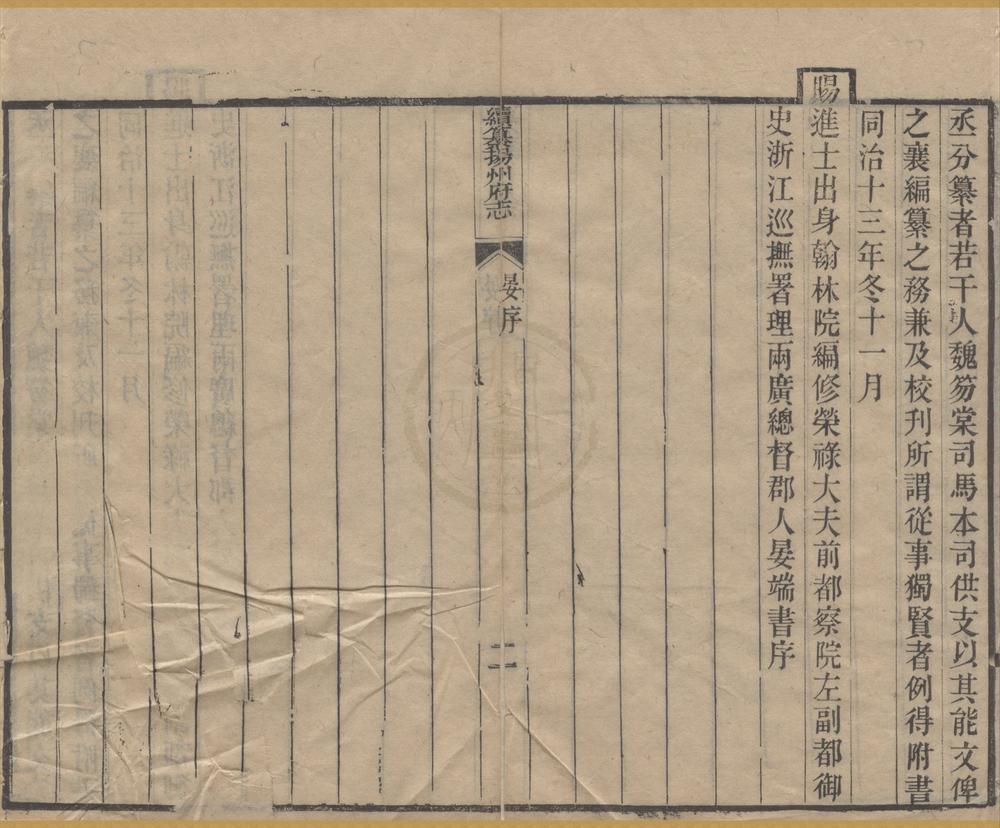 丞分纂者若干人魏笏棠司馬本司供支以其能文俾
之襄編纂之務兼及校刊所謂從事獨賢者例得附書
同治十三年冬十一月
賜進士出身翰林院編修榮祿大夫前都察院左副都御
史浙江巡撫署理兩廣總督郡人晏端書序
續纂揚州府志
晏序
二